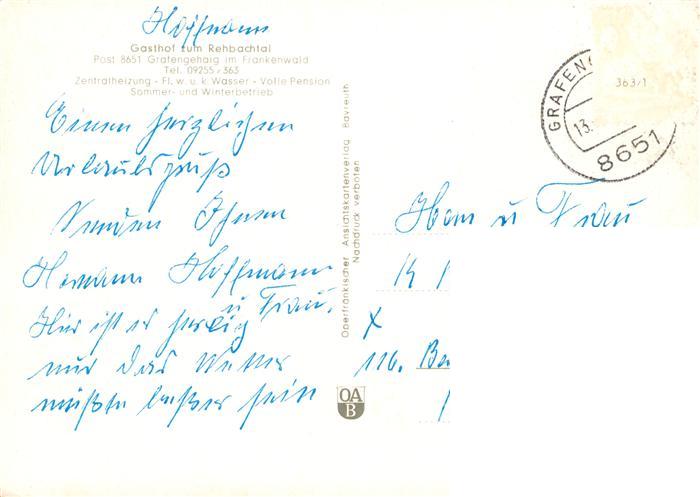 Hoffmann
Gasthof zum Rehbachtal
Post 8651 Grafengehaig im Frankenwald
Tel. 09255/363
Zentralheizung - Fl. w. u. k. Wasser - Volle Pension
Sommer- und Winterbetrieb
Einen herzlichen
Urlaubsgruß
Senden Ihnen
Hermann Hoffmann
u Frau.
Hier ist es herzlig
nur das Wetter
müßte beßer sein
Oberfränkischer Ansichtskartenverlag Bayreuth
Nachdruck verboten
OA
B
GRAFENG
13.
8651
363/1
Herrn u Frau
K
X
116. Ba